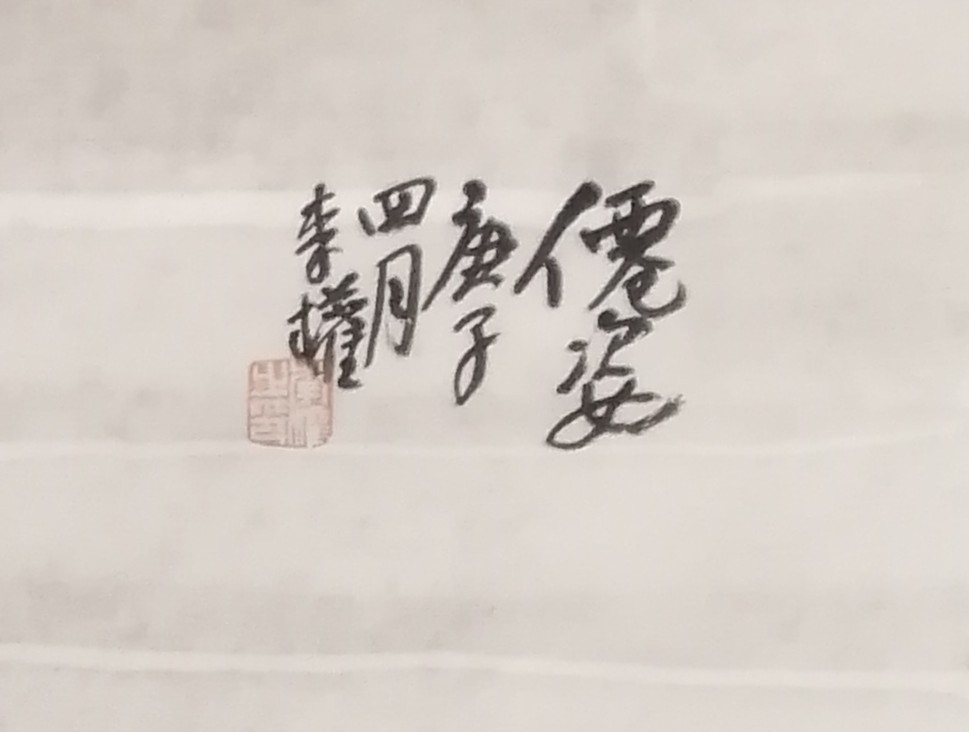 僊姿
庚子
四月
李權